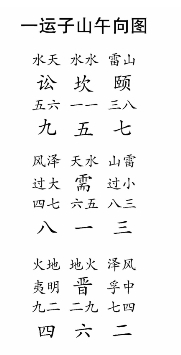 一运子山午向图
水天 水水 雷山
讼 坎 颐
五六 一一 三八
九 五 七
风泽 天水 山雷
过大 需 过小
四七 六五 八三
八 一 三
火地 地火 泽风
夷明 晋 孚中
九二 二九 七四
四 六 二